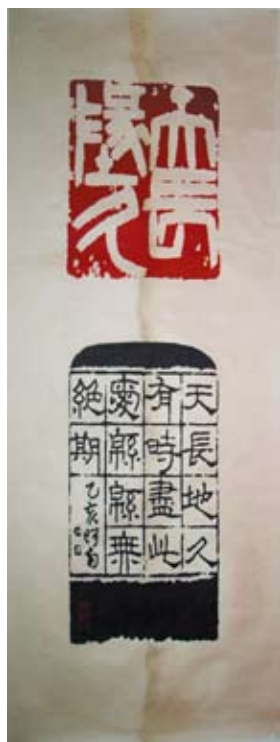 天長
地久
天長地久
有時盡此
愛緜緜無
絕期
乙亥